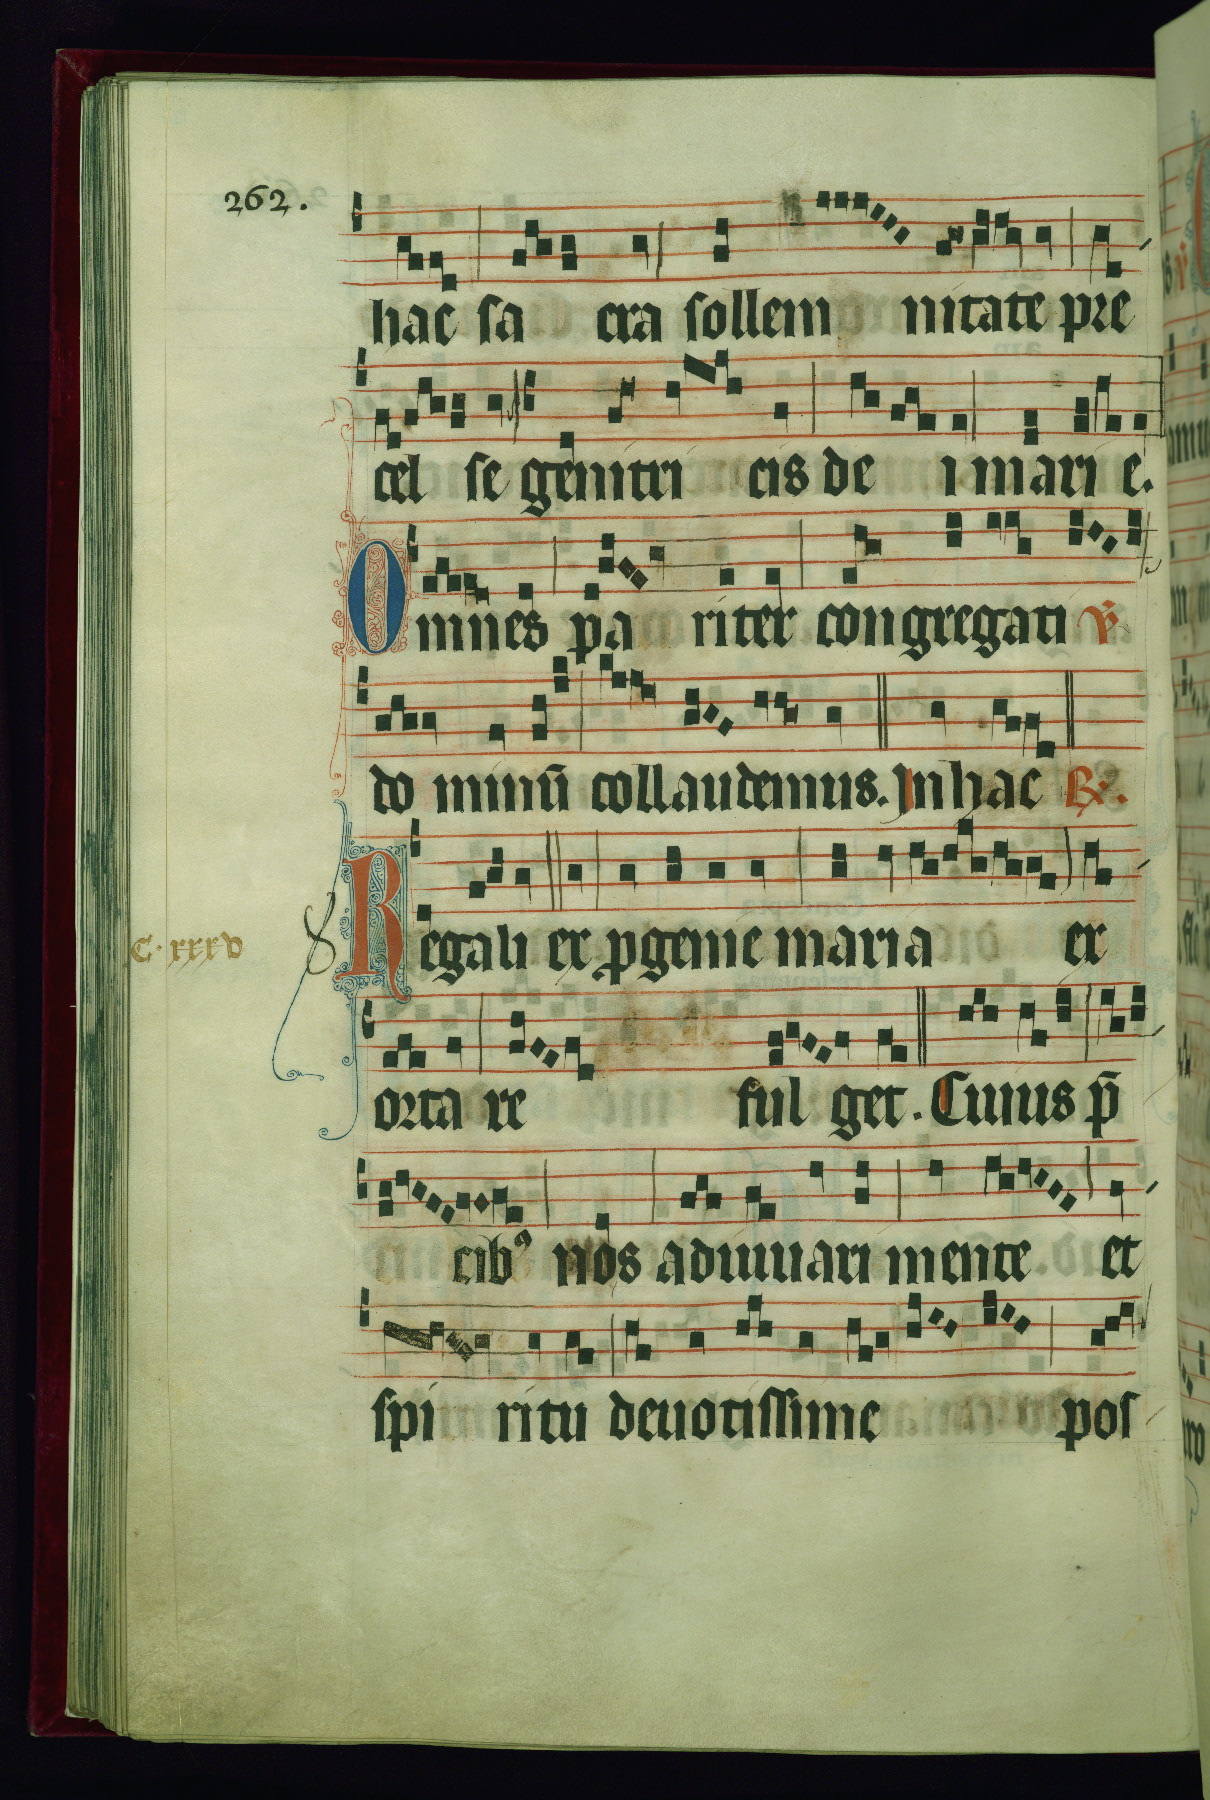 262.
hac sa cra sollem nitate pre
cel se genitri cis de i mari e.
Omnes pa riter congregati ℣
do minū collaudemus. In hac ℟.
C. xxxv
Regali ex ꝓgenie maria ex
orta re ful get. Cuius p̄
cibꝰ nos adiuuari mente et
spi ritu deuotissime pos